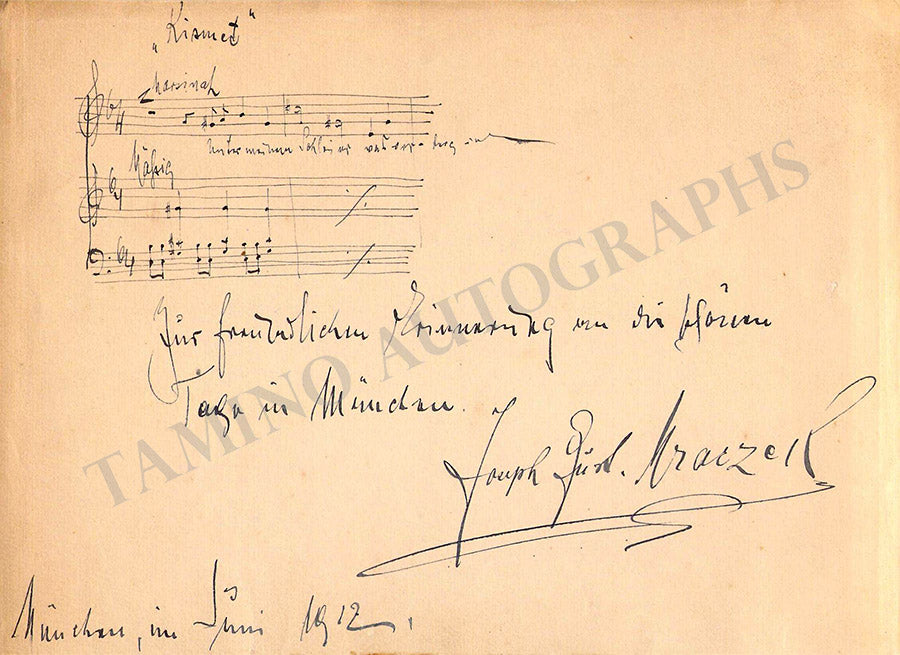 „Kismet"
Marsinah
Unter meinem Schleier
Mäßig
Zur freundlichen Erinnerung an die schönen
Tage in München.
Joseph Gust. Mraczek
München, im Juni 1912.
TAMINO AUTOGRAPHS